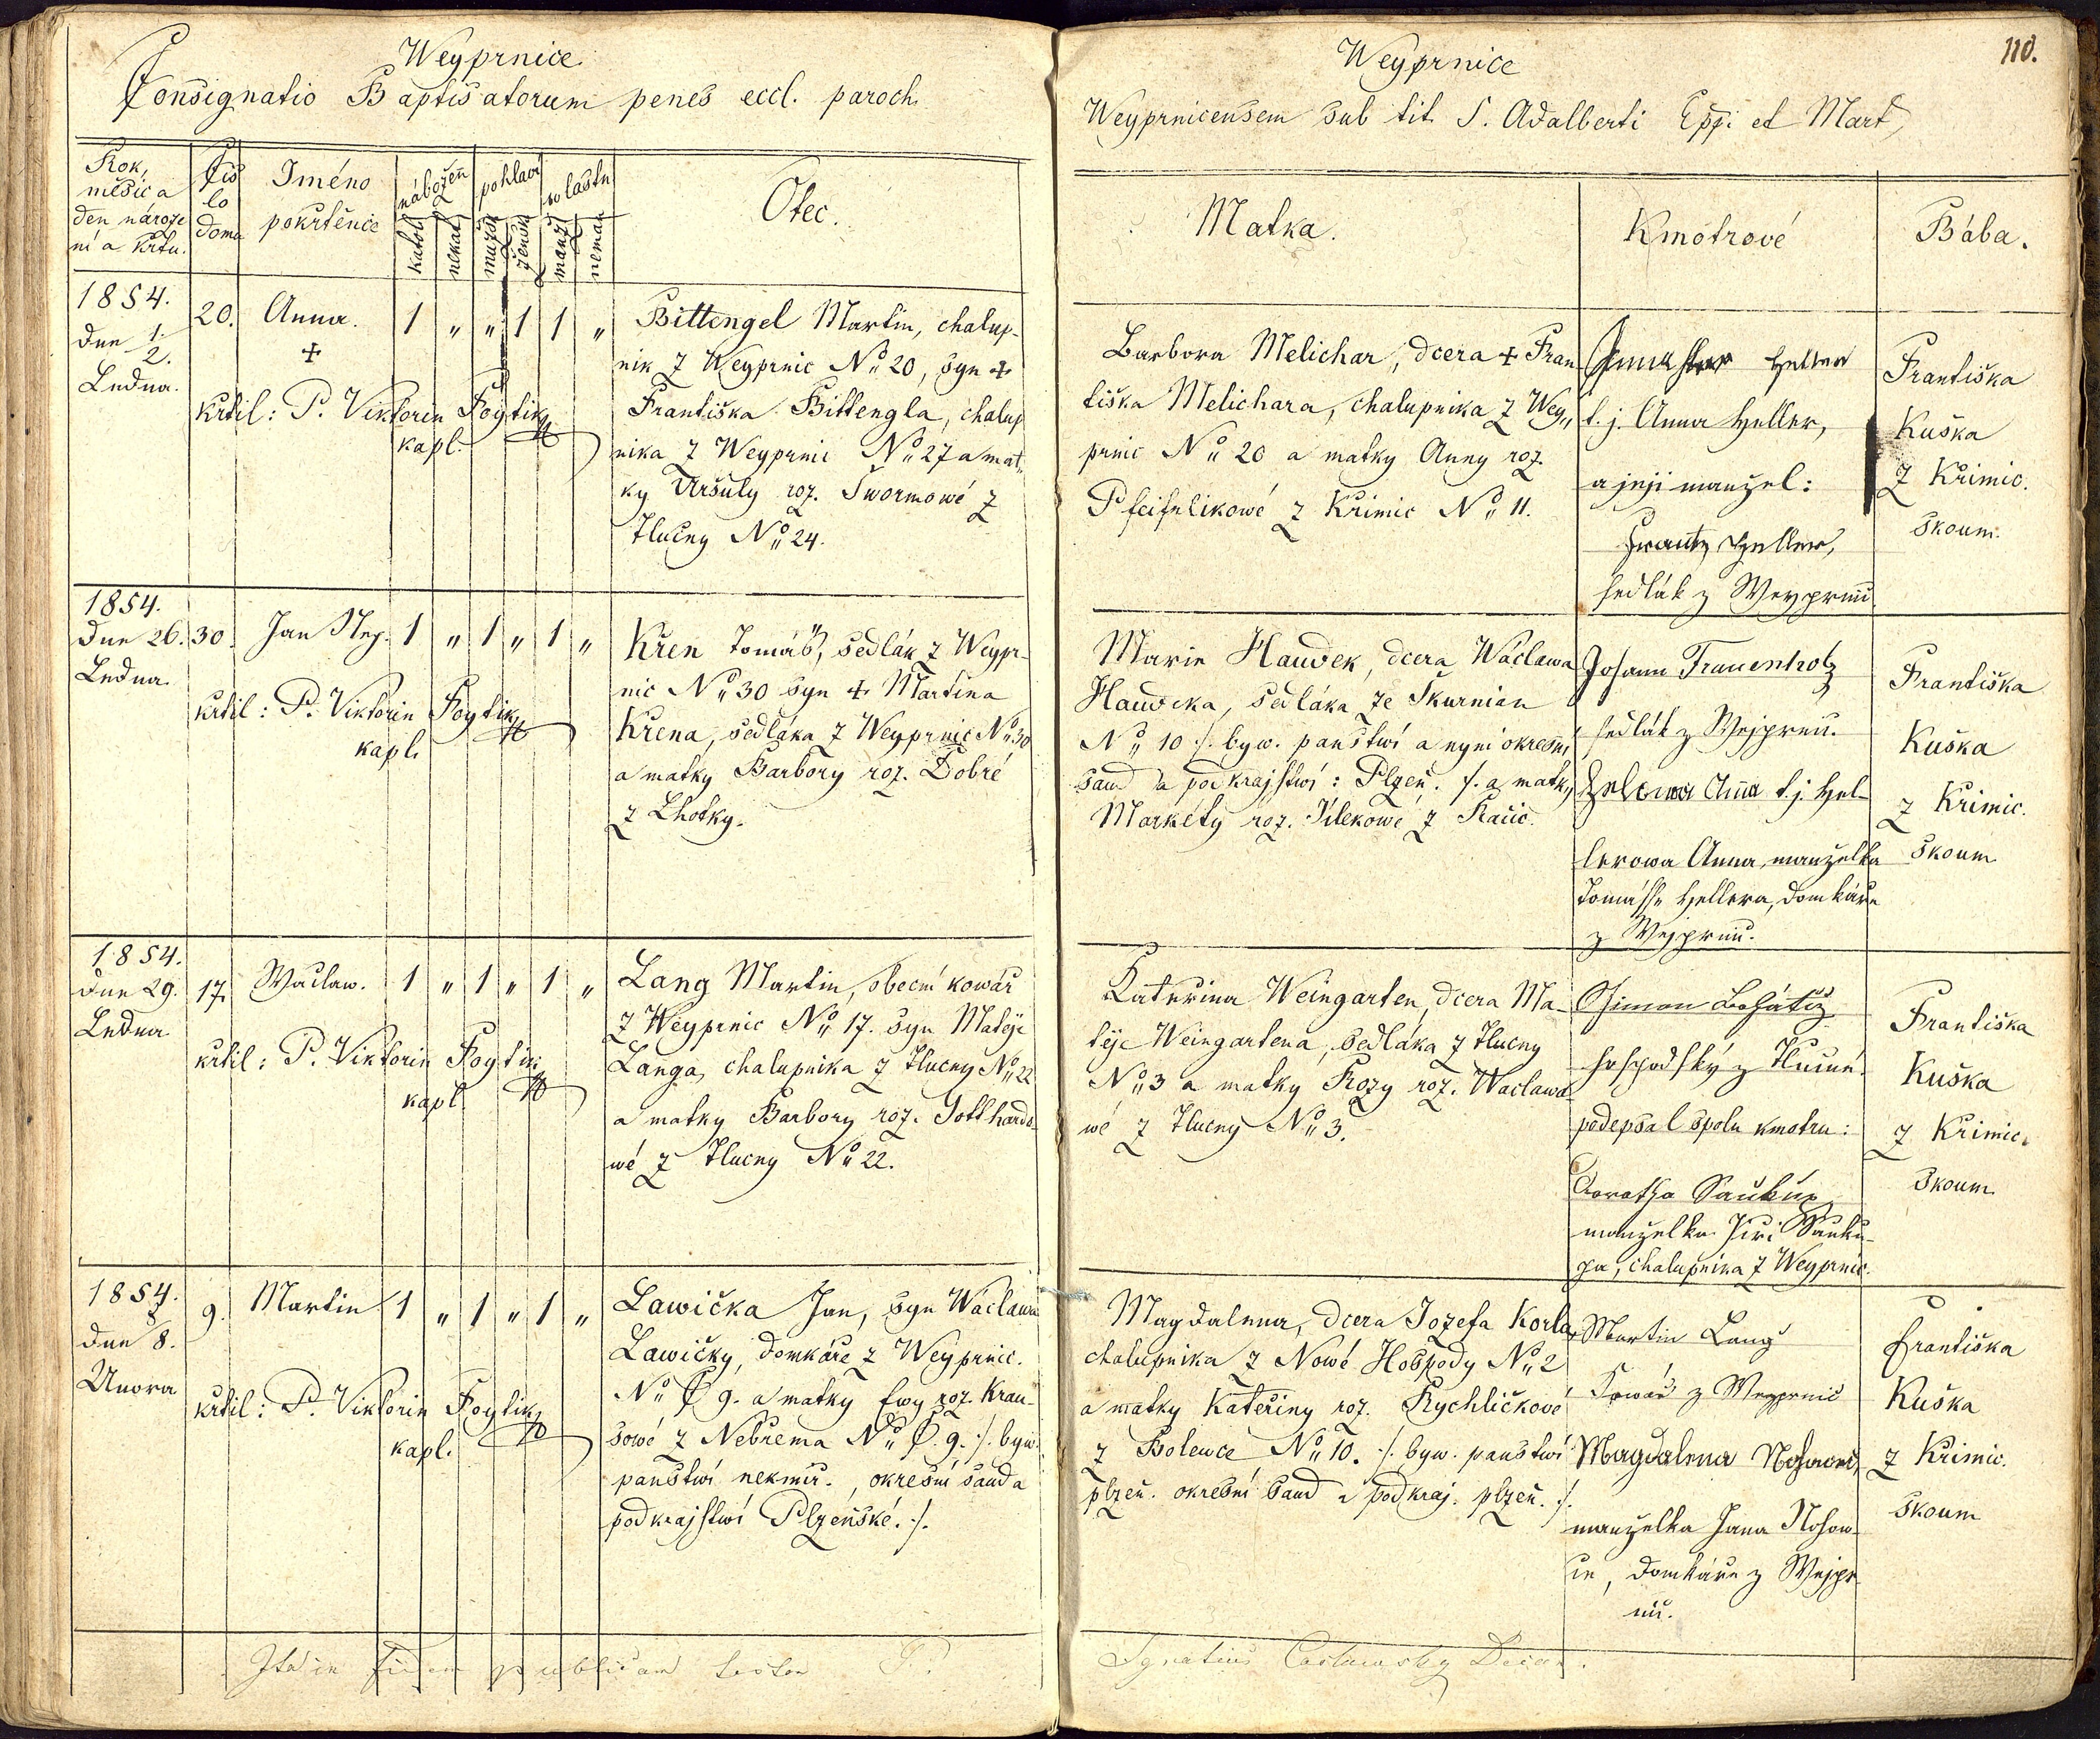 Weyprnice
Consignatio Baptisatorum penes eccl. paroch.
Rok,
měsíc a
den naroze
ní a křtu.
Čís
lo
domu
Jméno
pokřtěnce
nábožen
katol.
nekat.
pohlaví
mužsk
žensk
wlastn
manž
neman
Otec.
1854.
dne 1.
2.
Ledna.
20.
Anna.
+
1 " " 1 1 "
křtil: P. Viktorin Foytik
kapl.
Bittengel Martin, chalup-
nik z Weyprnic No 20, syn +
Františka Bittengla, chalup
nika z Weyprnic No 27 a mat-
ky Uršuly roz. Šwormowé z
Tlučny No 24.
1854.
dne 26.
Ledna.
30.
Jan Nep.
1 " 1 " 1 "
křtil: P. Viktorin Foytik
kapl.
Křen Tomáš, sedlák z Weypr-
nic No 30 syn + Martina
Křena, sedláka z Weyprnic No 30
a matky Barbory roz. Dobré
z Lhotky.
1854.
dne 29.
Ledna
17.
Waclaw.
1 " 1 " 1 "
křtil: P. Viktorin Foytik
kapl.
Lang Martin, obecní kowář
z Weyprnic No 17. syn Matěje
Langa, chalupnika z Tlucny No 22
a matky Barbory roz. Gotthardo-
wé z Tlucny No 22.
1854.
dne 8.
Unora
9.
Martin
1 " 1 " 1 "
křtil: P. Viktorin Foytik
kapl.
Lawička Jan, syn Wáclawa
Lawičky, domkáře z Weyprnic.
No 9. a matky Ewy roz. Krau-
sowé z Nebřema No 9. ./. býw.
panstwí nekmíř., okresní saud a
podkrajstwí Plzeňské. ./.
Ita in fidem publicam testor P.
110.
Weyprnice
Weyprnicensem sub tit. S. Adalberti Eppi et Mart.
Matka.
Kmotrové
Bába.
Barbora Melichar, dcera + Fran
tiška Melichara, chalupnika z Wey-
prnic No 20 a matky Anny roz.
Pfeifrlikowé z Křimic No 11.
Heller
t. j. Anna Heller,
a její manžel:
Frantz Heller,
sedlák z Weyprnic
Františka
Kuška
z Křimic.
skoum.
Marie Hawdek, dcera Wáclawa
Hawdeka, sedláka ze Škurnian
No 10 ./. býw. panstwí a nyní okresní
saud a podkrajstwí: Plzeň. ./. a matky
Markéty roz. Pilekowé z Račic.
Johann Frauenholz
sedlák z Wejprnic.
Anna t. j. Hel-
lerowa Anna, manželka
Tomásse Hellera, domkáře
z Wejprnic.
Františka
Kuška
z Křimic.
skoum
Kateřina Weingarten, dcera Ma-
těje Weingartena, sedláka z Tlucny
No 3 a matky Rozy roz. Waclawo-
wé z Tlucny No 3.
Simon
hospodský z Tlučné.
podepsal spolu kmotru:
Dorotha Saukup
manželka Jiří Sauku-
pa, chalupnika z Weyprnic.
Františka
Kuška
z Křimic.
skoum
Magdalena, dcera Jozefa Korla,
chalupnika z Nowé Hospody No 2
a matky Kateřiny roz. Rychličkowé
z Bolewce No 10. ./. býw. panstwí
plzeň. okresní saud a podkraj. plzeň. ./.
Martin Lang
Kowář z Weyprnic
Magdalena
manželka Jana
domkáře z Wejpr
nic.
Františka
Kuška
z Křimic.
skoum
Ignatius